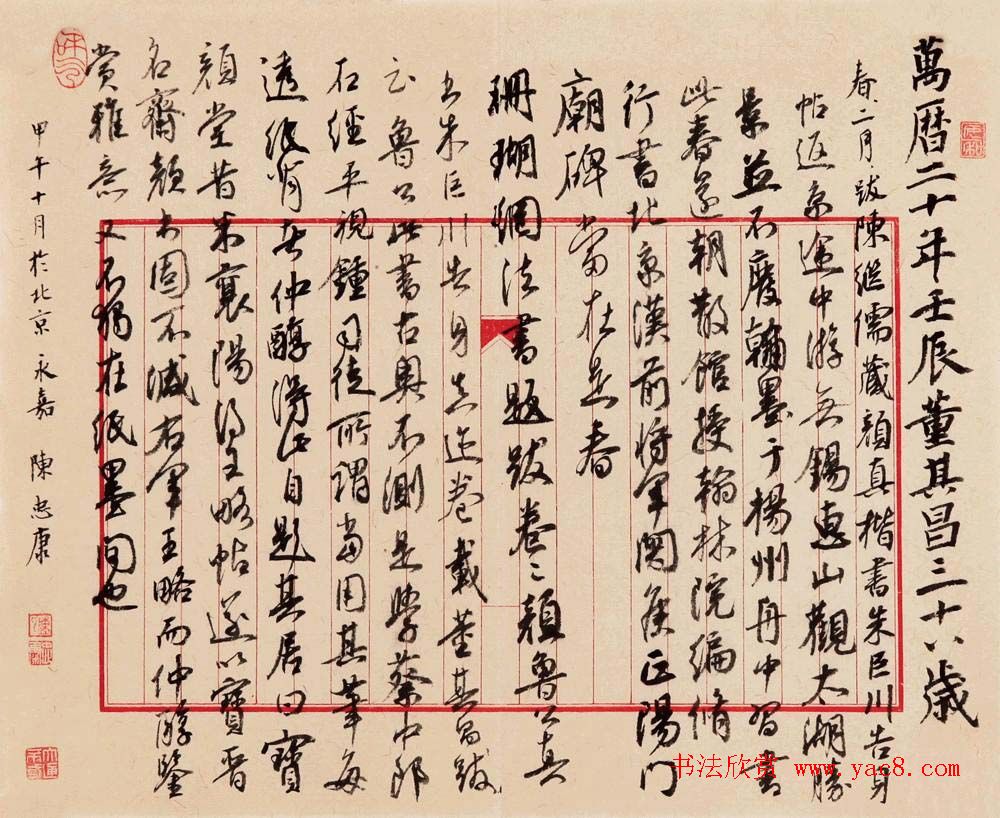 萬曆二十年壬辰董其昌三十八歲
春二月跋陳繼儒藏顏真楷書朱巨川告身
帖返京途中游無錫惠山觀太湖勝
景並不廢翰墨于楊州舟中習書
此春還朝散館授翰林院編脩
行書北京漢前將軍関侯正陽門
廟碑當在是春
珊瑚網法書題跋卷二顏魯公真
書朱巨川告身真迹卷載董其昌跋
云魯公此書古奧不測是學蔡中郎
石經平視鍾司徒所謂當用其筆每
透紙背者仲醇得此自題其居曰寶
顏堂昔米襄陽得王略帖遂以寶晋
名齋顏書固不減右軍王略而仲醇鑒
賞雅意又不獨在紙墨間也
甲午十月於北京永嘉陳忠康
书法欣赏 www.yac8.com